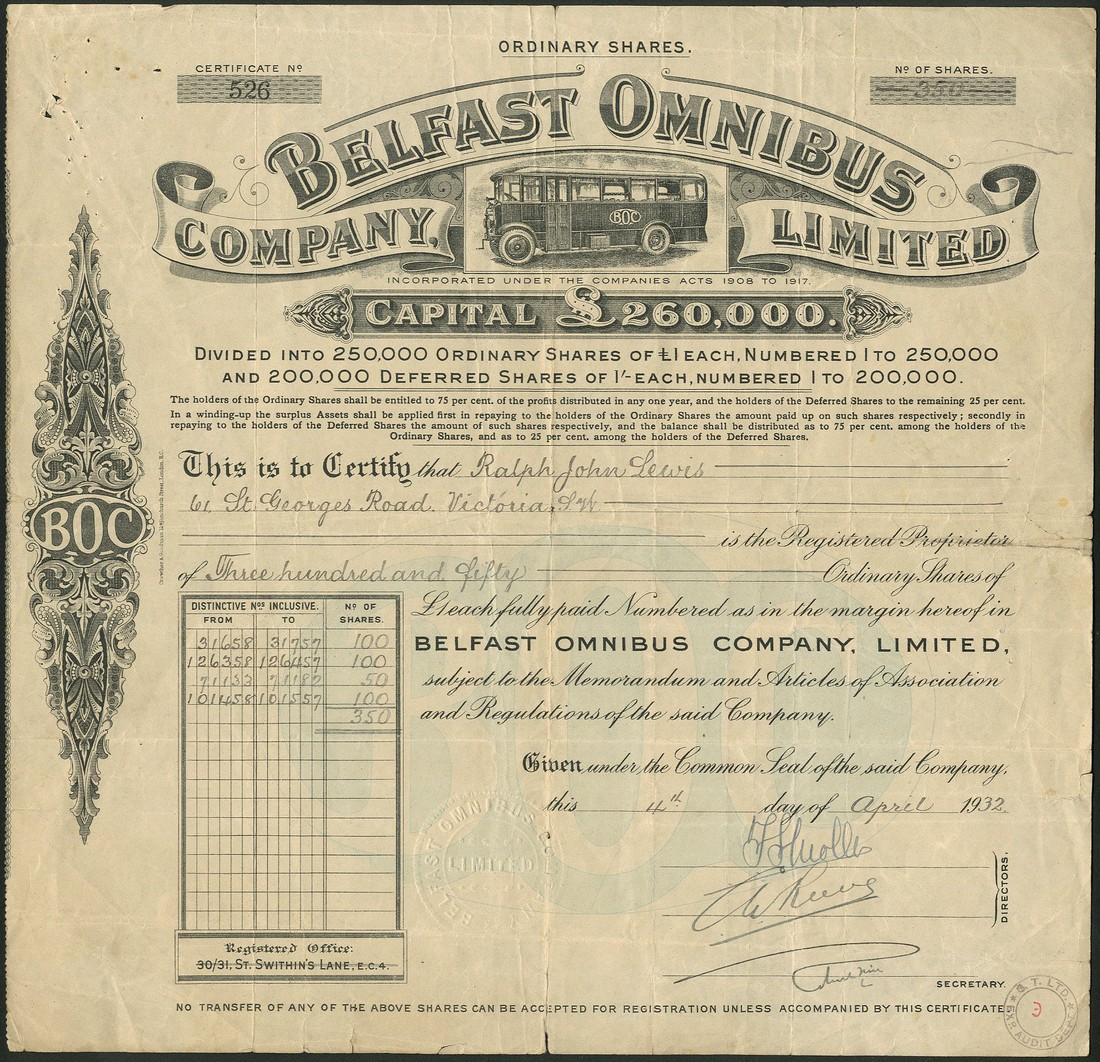 ORDINARY SHARES.
CERTIFICATE Nº
526
Nº OF SHARES.
350
BELFAST OMNIBUS
COMPANY, LIMITED
BOC
INCORPORATED UNDER THE COMPANIES ACTS 1908 TO 1917.
CAPITAL £260,000.
DIVIDED INTO 250,000 ORDINARY SHARES OF £1 EACH, NUMBERED 1 TO 250,000
AND 200,000 DEFERRED SHARES OF 1/- EACH, NUMBERED 1 TO 200,000.
The holders of the Ordinary Shares shall be entitled to 75 per cent. of the profits distributed in any one year, and the holders of the Deferred Shares to the remaining 25 per cent.
In a winding-up the surplus Assets shall be applied first in repaying to the holders of the Ordinary Shares the amount paid up on such shares respectively; secondly in
repaying to the holders of the Deferred Shares the amount of such shares respectively, and the balance shall be distributed as to 75 per cent. among the holders of the
Ordinary Shares, and as to 25 per cent. among the holders of the Deferred Shares.
This is to Certify that Ralph John Lewis
61 St. Georges Road. Victoria, S.W
is the Registered Proprietor
of Three hundred and fifty Ordinary Shares of
£1 each fully paid Numbered as in the margin hereof in
BELFAST OMNIBUS COMPANY, LIMITED,
subject to the Memorandum and Articles of Association
and Regulations of the said Company.
Given under the Common Seal of the said Company,
this 4th day of April 1932
BOC
DISTINCTIVE Nºs INCLUSIVE. Nº OF
FROM TO SHARES.
31658 31757 100
126358 126457 100
71133 71182 50
101458 101557 100
350
BELFAST OMNIBUS COMPANY
LIMITED
DIRECTORS.
Registered Office:
30/31, ST. SWITHIN'S LANE, E.C.4.
SECRETARY.
NO TRANSFER OF ANY OF THE ABOVE SHARES CAN BE ACCEPTED FOR REGISTRATION UNLESS ACCOMPANIED BY THIS CERTIFICATE
T. LTD.
AUDIT DEPT